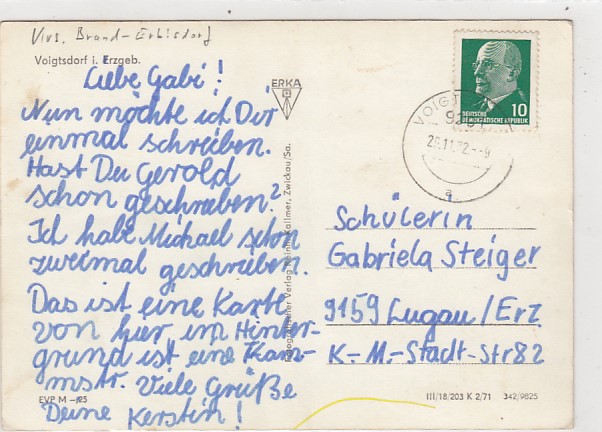 Voigtsdorf i. Erzgeb.
Liebe Gabi!
Nun möchte ich Dir
einmal schreiben.
Hast Du Gerold
schon geschrieben?
Ich habe Michael schon
zweimal geschrieben.
Das ist eine Karte
von hier im Hinter-
grund ist eine Kam-
mstr. Viele Grüße
Deine Kerstin!
EVP M -,25
ERKA
Fotografischer Verlag Kallmer, Zwickau/Sa.
10
DEUTSCHE
DEMOKRATISCHE REPUBLIK
VOIGT
a
Schülerin
Gabriela Steiger
9159 Lugau/Erz
K.-M.-Stadt-Str 82
III/18/203 K 2/71 342/9825